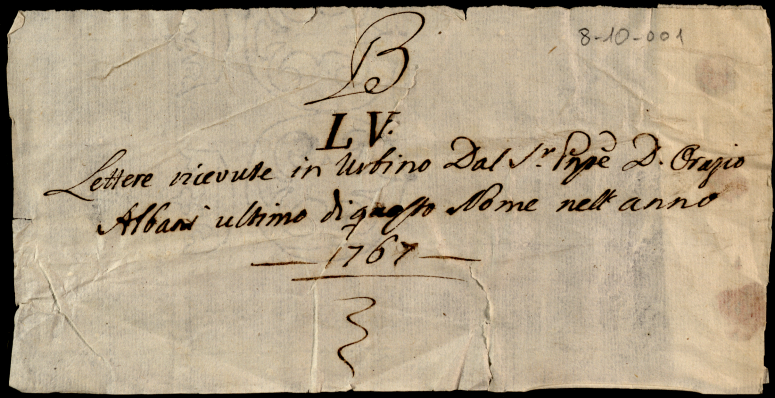 8-10-001
B
LV.
Lettere ricevute in Urbino Dal S.r Pnpe D. Orazio
Albani ultimo di questo Nome nell'anno
1767